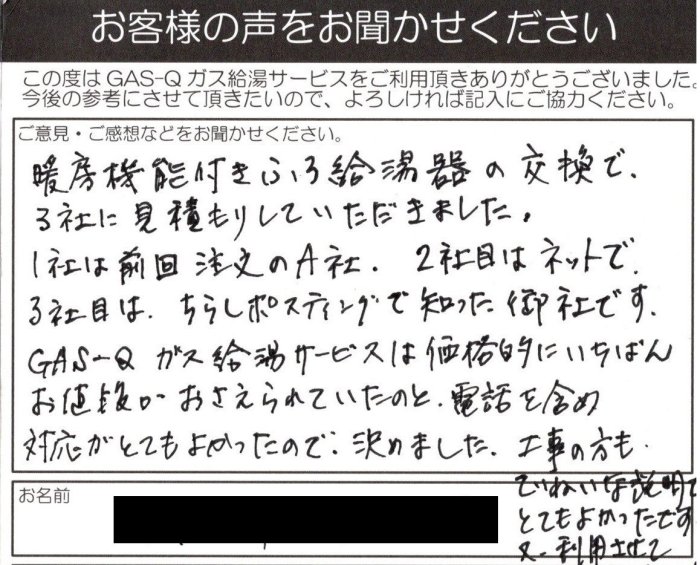 お客様の声をお聞かせください
この度はGAS-Qガス給湯サービスをご利用頂きありがとうございました。
今後の参考にさせて頂きたいので、よろしければ記入にご協力ください。
ご意見・ご感想などをお聞かせください。
暖房機能付きふろ給湯器の交換で、
3社に見積もりしていただきました。
1社は前回注文のA社、2社目はネットで、
3社目は、ちらしポスティングで知った御社です。
GAS-Q ガス給湯サービスは価格的にいちばん
お値段がおさえられていたのと、電話を含め
対応がとてもよかったので、決めました。工事の方も、
ていねいな説明で
とてもよかったです
又、利用させて
お名前